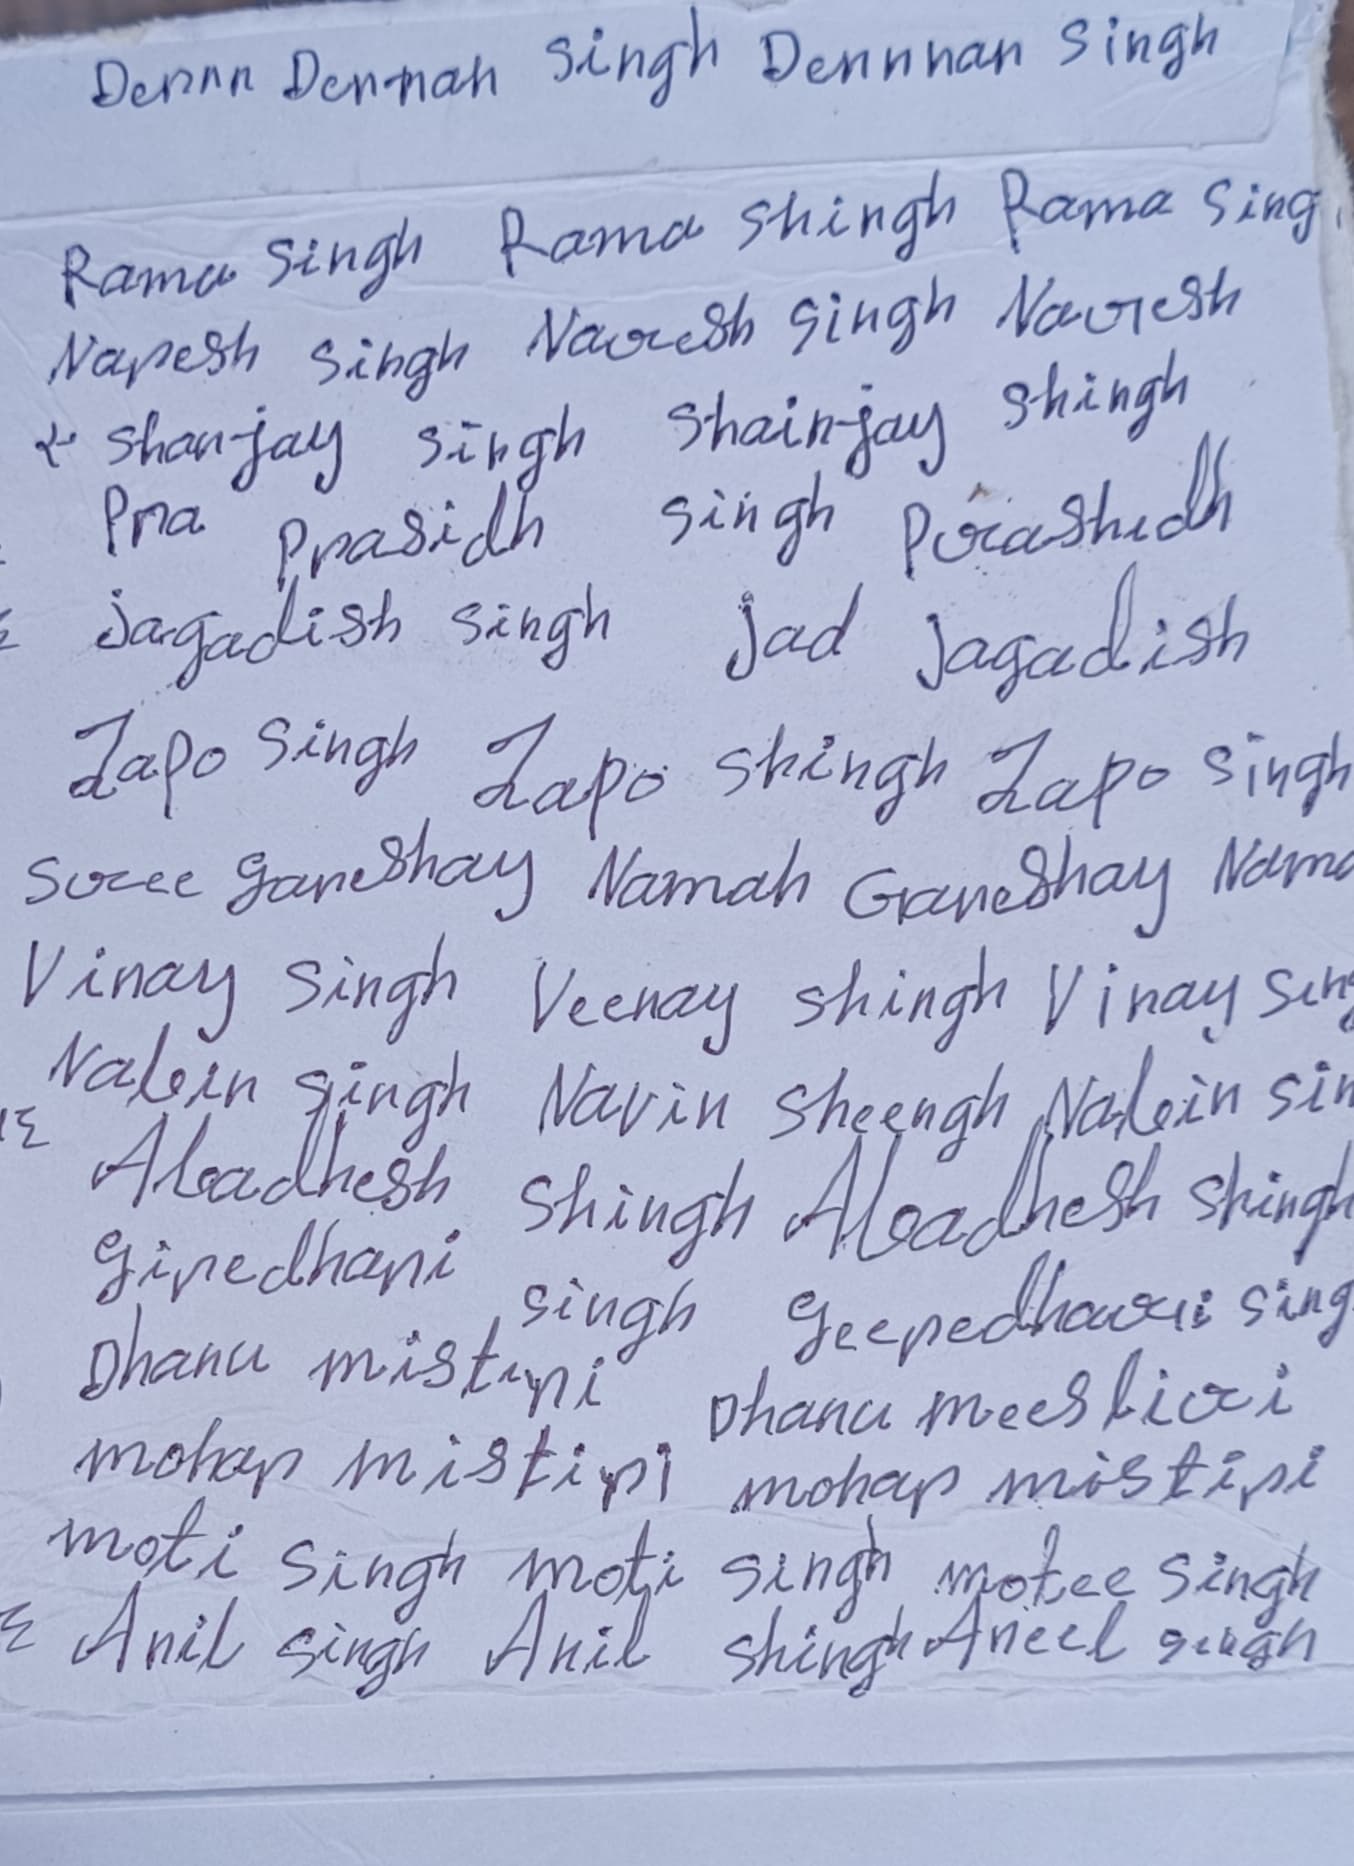 Dennn Dennah Singh Dennnan Singh
Rama Singh Rama Shingh Rama Sing
Naresh Singh Naresh Singh Naresh
Shanjay Singh Shainjay Shingh
Pra Prasidh Singh Prashidh
Jagadish Singh Jad Jagadish
Zapo Singh Zapo Shingh Zapo Singh
Sree Ganeshay Namah Ganeshay Nama
Vinay Singh Veenay Shingh Vinay Sing
Nabin Singh Navin Sheengh Nabin Sin
Abadhesh Shingh Abadhesh Shingh
Giredhari Singh Geeredhari Sing
Dhanu mistiri Dhanu meestiri
mohar mistiri mohar mistiri
moti Singh moti Singh motee Singh
Anil Singh Anil Shingh Aneel Singh